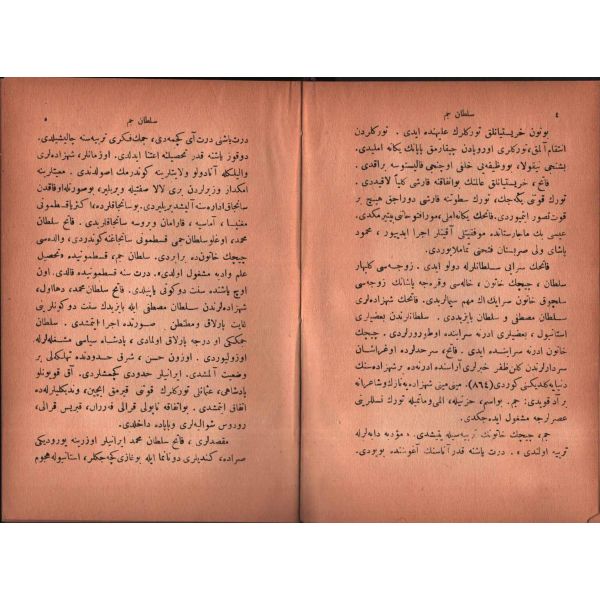 ٤ سلطان جم
بوتون خریستیانلق تورکلرك علیهنده ایدی . تورکلردن
انتقام آلمق، تورکلری اوروپادن چیقارمق پاپانك یکانه املیدی.
بشنجی نیقولا، بووظیفه‌یی خلفی اوچنجی قالیستوسه براقدی .
فاتح ، خریستیانلق عالمنك بواتفاقنه قارشی کلیاً لاقیددی .
تورك قوتی یکه‌جك، تورك سطوتنه قارشی دوراجق هیچ بر
قوت تصور ایتمیوردی. فاتحك یکانه املی، موراقتوساتی بیتیرمکدی.
عیسی بك ماجارستانده موفقیتلی آقینلر اجرا ایدییور ، محمود
پاشا ولی صربستان فتحنی تماملایوردی.
فاتحك سرایی سلطانلرله دولو ایدی . زوجه‌سی کلبهار
سلطان ، چیچك خاتون ، خاله‌سی وقره‌جه پاشانك زوجه‌سی
سلجوق خاتون سرایك اك مهم سیمالریدی. فاتحك شهزاده‌لری
سلطان مصطفی و سلطان بایزیددی . سلطانلردن بعضیلری
استانبول ، بعضیلری ادرنه سراینده اوطورورلردی . چیچك
خاتون ادرنه سراینده ایدی . فاتح ، سرحدلرده اوغراشان
سردارلرندن کلن ظفر خبرلری آراسنده ادرنه‌دن بر شهزاده‌سنك
دنیایه کلدیکنی کوردی (٨٦٤). مینی مینی شهزاده‌یه نازك وشاعرانه
بر آد قویدی: جم. بواسم ، حزنیله، المی وماتمیله تورك نسللرینی
عصرلرجه مشغول ایده‌جکدی.
جم، چیچك خاتونك تربیه‌سیله یتیشدی . مؤدبه دایه‌لرله
تربیه اولندی ، . درت یاشنه قدر آناسنك آغوشنده بویودی.
سلطان جم ٥
درت یاشنی درت آی کچمه‌دی، جمك فکری تربیه‌سنه چالیشیلدی.
دوقوز یاشنه قدر تحصیلنه اعتنا ایدلدی. اوزمانلر، شهزاده‌لری
والیلکله آنادولو ولایتلرینه کوندرمك اصولدندی. معیتلرینه
امکدار وزیرلردن بری لالا صفتیله ویریلیر، بوصورتله اوفاقدن
سانجاق اداره‌سنه آلیشدیریلیردی. بوسانجاقلرده، اکثر یا قسطمونی
مغنیسا ، آماسیه ، قارامان وبروسه سانجاقلریدی . فاتح سلطان
محمد، اوغلو سلطان جمی قسطمونی سانجاغنه کوندردی. والده‌سی
چیچك خاتون‌ده برابردی. سلطان جم، قسطمونیده تحصیل
علم وادبه مشغول اولدی. درت سنه قسطمونیده قالدی. اون
اوچ یاشنده سنت دوکونی یاپیلدی. فاتح سلطان محمد، دهااول،
شهزاده‌لرندن سلطان مصطفی ایله بایزیدك سنت دوکونلرینی
غایت پارلاق ومطنطن صورتده اجرا ایتمشدی .
جمککی او درجه پارلاق اولمادی ، پادشاه سیاسی مشغله‌لرله
اوزولیوردی . اوزون حسن ، شرق حدودنده تهلکه‌لی بر
وضعیت آلمشدی. ایرانیلر حدودی کچمشلردی. آق قویونلو
پادشاهی، عثمانلی تورکلرك قوتی قیرمق ایچین، وندیکلیلرله‌ده
اتفاق ایتمشدی. بواتفاقه ناپولی قرالی فه‌رران، قبریس قرالی،
رودوس شوالیه‌لری وپاپاده داخلدی.
مقصدلری ، فاتح سلطان محمد ایرانیلر اوزرینه یورودیکی
صراده، کندیلری دونانما ایله بوغازی کچه‌جکلر ، استانبوله هجوم